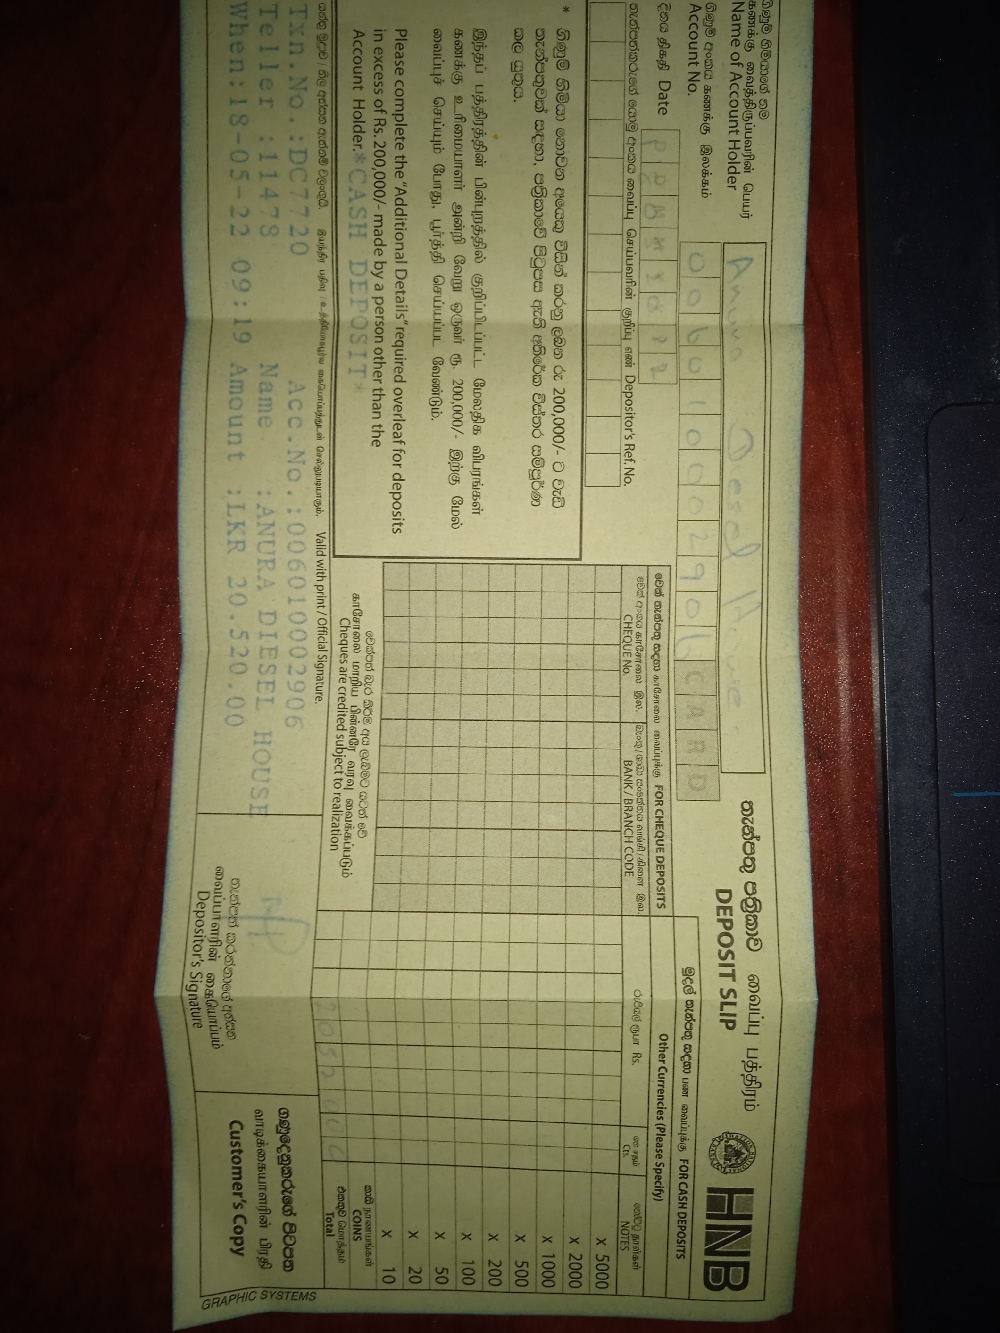 තැන්පතු පත්‍රිකාව வைப்பு பத்திரம்
DEPOSIT SLIP
HNB
ගිණුම් හිමියාගේ නම
கணக்கு வைத்திருப்பவரின் பெயர்
Name of Account Holder
Anura Diesel House
ගිණුම් අංකය கணக்கு இலக்கம்
Account No.
006010002906 CARD
දිනය திகதி Date
තැන්පත්කරුගේ යොමු අංකය வைப்பு செய்பவரின் குறிப்பு எண் Depositor's Ref. No.
* ගිණුම් හිමියා නොවන අයෙකු විසින් කරනු ලබන රු 200,000/- ට වැඩි
තැන්පතුවක් සඳහා, පත්‍රිකාවේ පිටුපස ඇති අතිරේක විස්තර සම්පූර්ණ
කල යුතුය.
இந்தப் பத்திரத்தின் பின்புறத்தில் குறிப்பிடப்பட்ட மேலதிக விபரங்கள்
கணக்கு உரிமையாளர் அன்றி வேறு ஒருவர் ரூ. 200,000/- இற்கு மேல்
வைப்புச் செய்யும் போது, பூர்த்தி செய்யப்பட வேண்டும்.
Please complete the "Additional Details" required overleaf for deposits
in excess of Rs. 200,000/- made by a person other than the
Account Holder.
*CASH DEPOSIT*
චෙක් තැන්පතු සඳහා காசோலை வைப்புக்கு FOR CHEQUE DEPOSITS
චෙක් අංකය காசோலை இல.
CHEQUE No.
BANK / BRANCH CODE
චෙක්පත් බැර කිරීම අය ලැබීමට යටත් වේ
காசோலை மாறிய பின்னரே வரவு வைக்கப்படும்
Cheques are credited subject to realization
මුදල් තැන්පතු සඳහා பண வைப்புக்கு FOR CASH DEPOSITS
Other Currencies (Please Specify)
රුපියල් ரூபா Rs.
ශත சதம்
Cts.
නෝට්ටු தாள்கள்
NOTES
X 5000
X 2000
X 1000
X 500
X 200
X 100
X 50
X 20
X 10
කාසි நாணயங்கள்
COINS
එකතුව மொத்தம்
Total
20520 00
Valid with print / Official Signature.
Txn.No.:DC7720 Acc.No.:006010002906
Teller :11478 Name :ANURA DIESEL HOUSE
When:18-05-22 09:19 Amount :LKR 20.520.00
තැන්පත් කරන්නාගේ අත්සන
வைப்பாளரின் கையொப்பம்
Depositor's Signature
ගනුදෙනුකරුගේ පිටපත
வாடிக்கையாளரின் பிரதி
Customer's Copy
GRAPHIC SYSTEMS